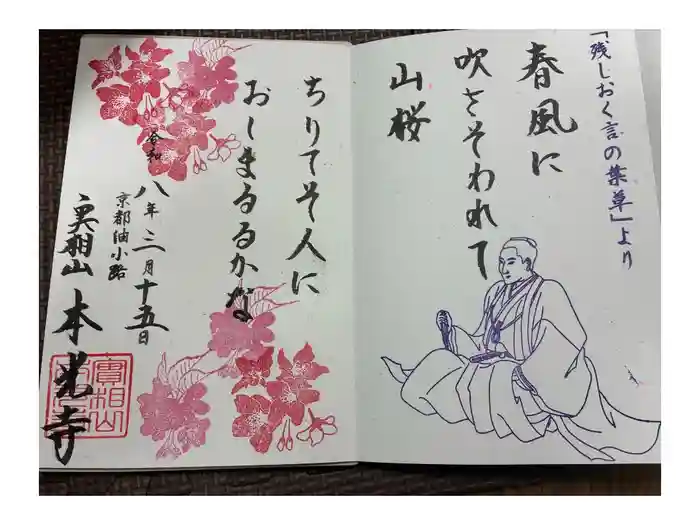 「残しおく言の葉草」より
春風に
吹きそわれて
山桜
ちりてそ人に
おしまるるかな
令和
八年三月十五日
京都油小路
実相山 本光寺
實相山